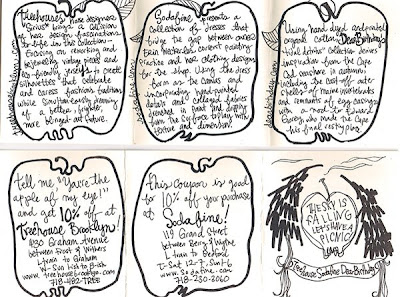 Treehouse's muse designers
Sirius brings a collection
of her design fascinations
to life in this collection.
Focusing on reworking and
bejeweling vintage pieces and
eco-friendly products to create
silhouettes that celebrate
and caress fashions traditions
while simultaneously dreaming
of a better, brighter,
more blinged out future.
Sodafine presents a
collection of dresses that
bridge the gap between owner
Erin Weckerle's current painting
practice and her clothing designs
for the shop. Using the dress
form as the canvas and
incorporating hand-painted
details and collaged fabrics
drenched in paint and dripping
from the surface to play with
texture and dimension.
using hand dyed and painted
organic cotton, Dear Birthday's
collection derives
inspiration from the Cape
Cod seashore in autumn
including the cast-off outer
shells of marine invertebrates
and remnants of egg casings
with a nod to Edward
Gorey who made the Cape
his final resting place.
tell me "You're the
apple of my eye!"
and get 10% off at
Treehouse Brooklyn!
430 Graham Avenue
between Frost & Withers
L train to Graham
www.treehousebrooklyn.com
718-482-TREE
this coupon is good
for 10% off your purchase
at Sodafine!
119 Grand Street
between Berry & Wythe
L train to Bedford
T-Sat 12-7, Sun 1-6
www.sodafine.com
718-230-3060
THE SKY IS
FALLING
LET'S HAVE A
PICNIC
Treehouse Sodafine Dear Birthday